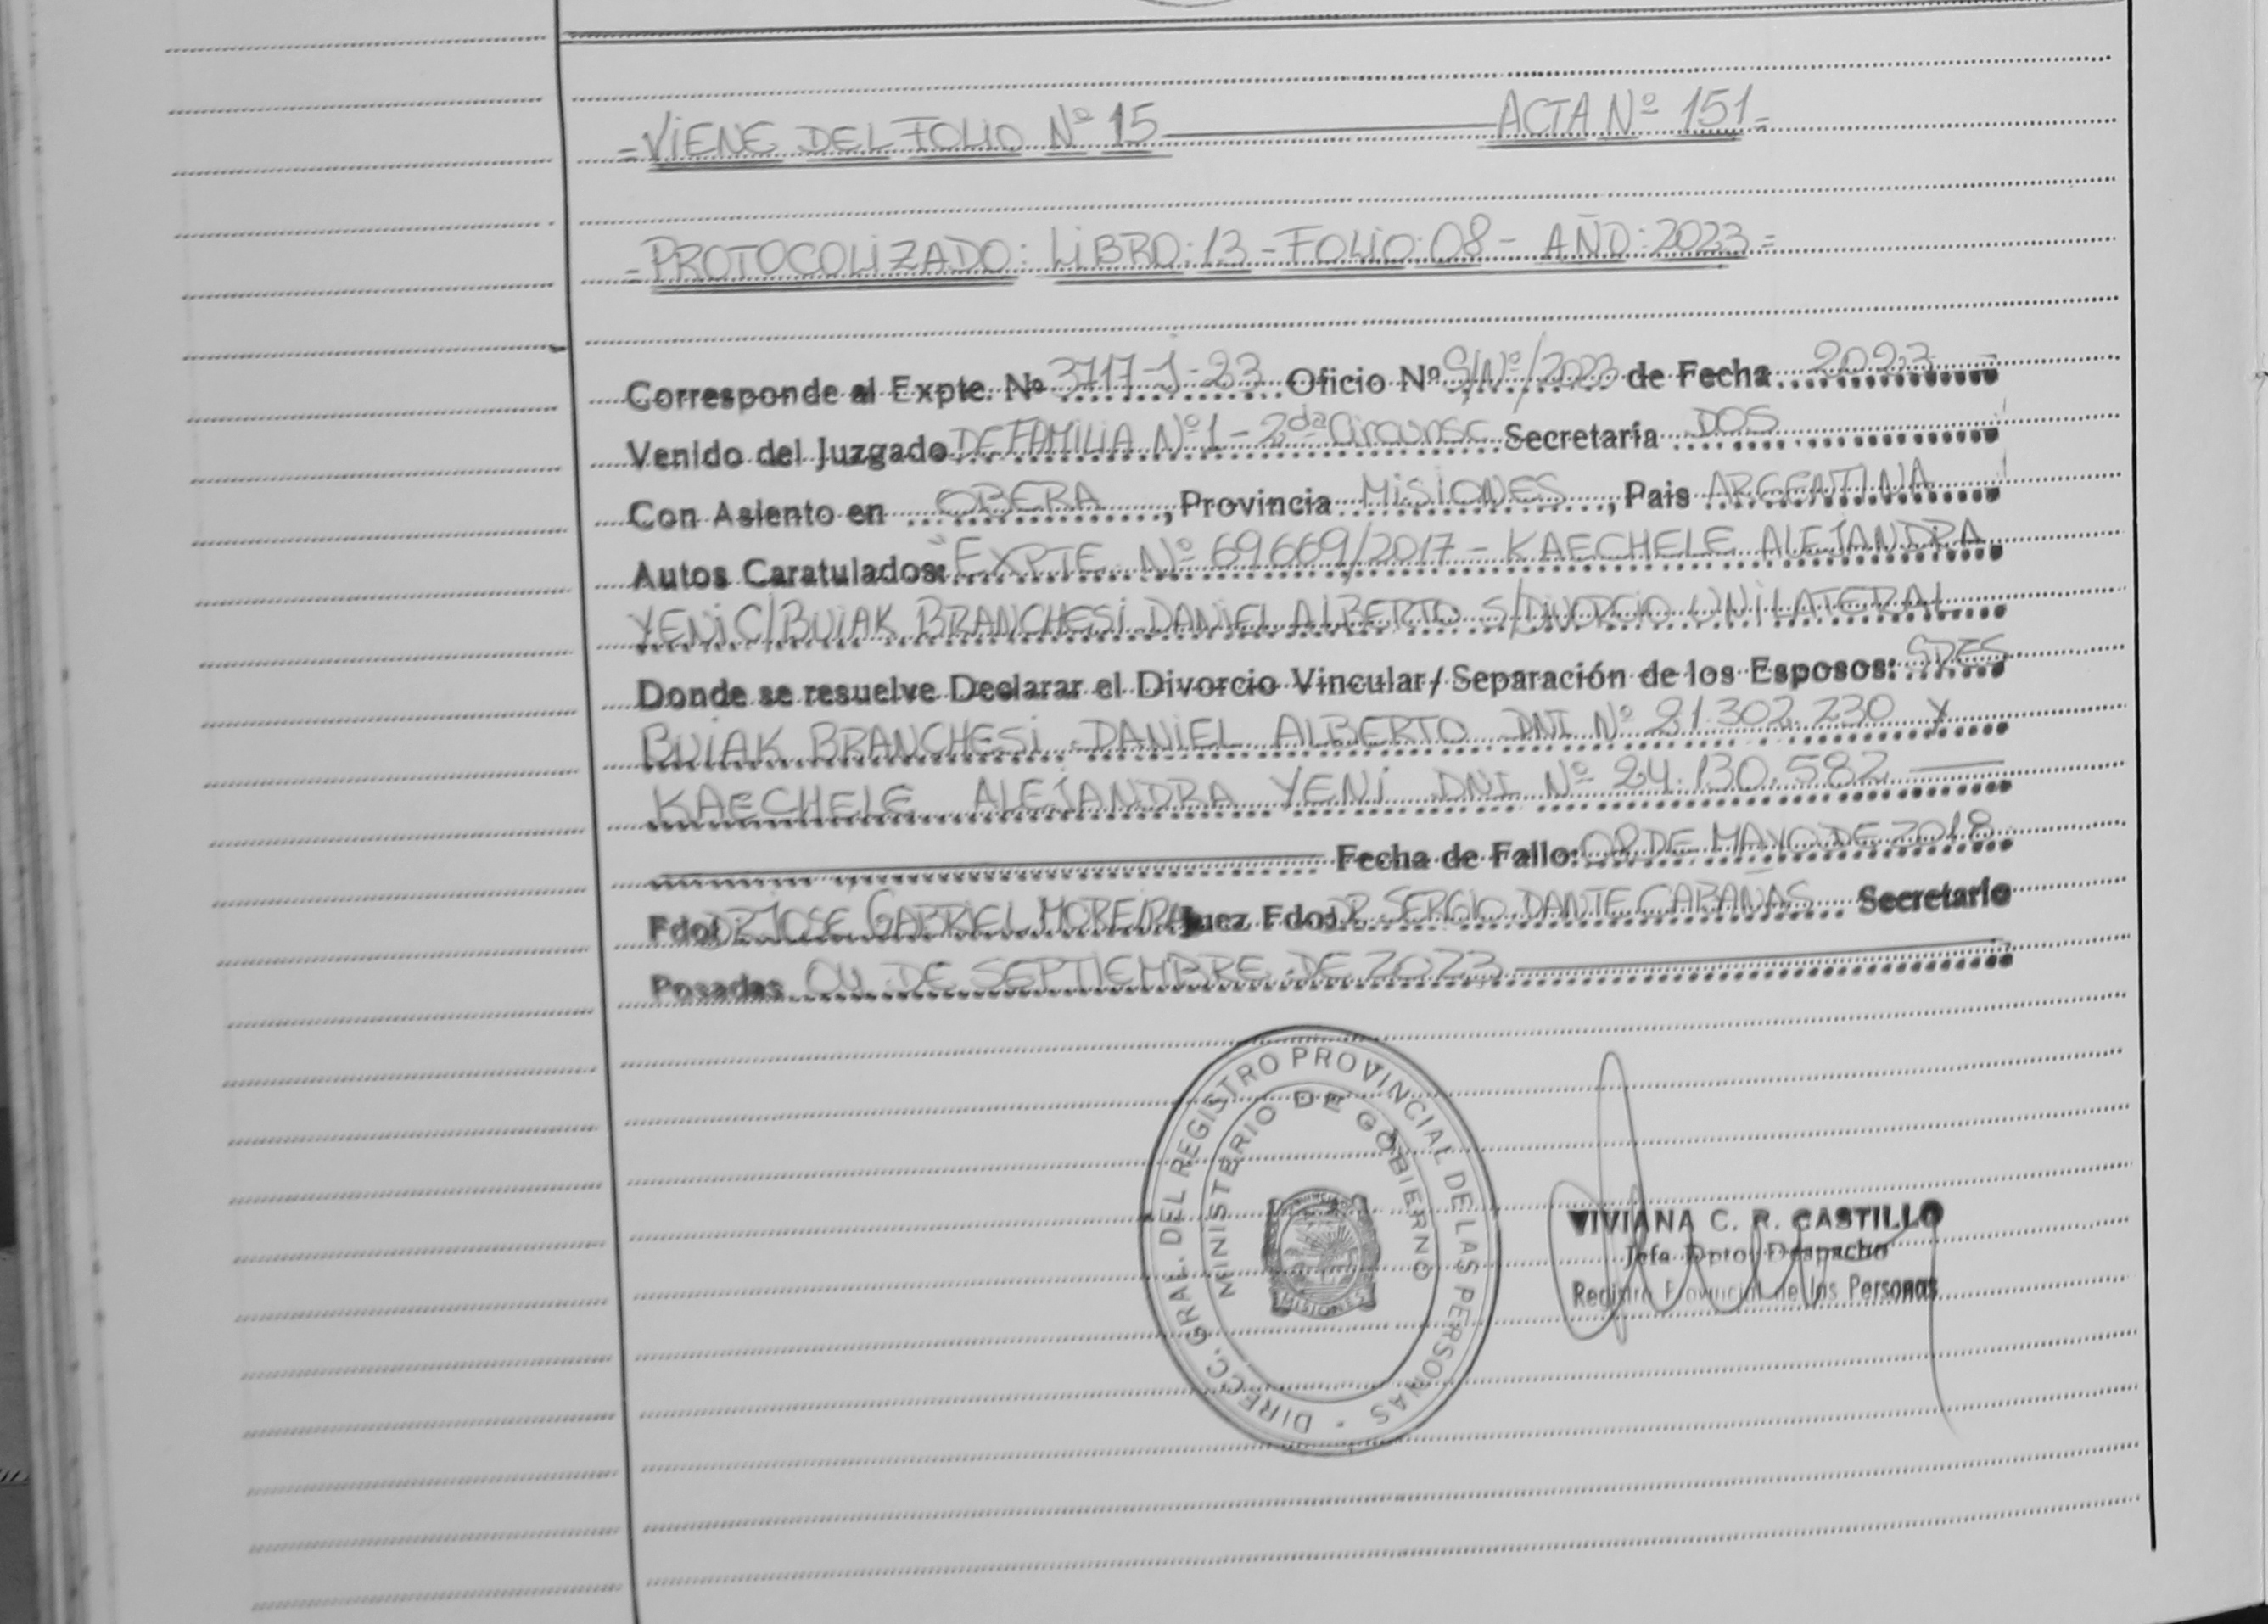 =VIENE DEL FOLIO Nº 15 ACTA Nº 151=
=PROTOCOLIZADO: LIBRO: 13 - FOLIO: 08 - AÑO: 2023=
Corresponde al Expte. Nº 3717-J-23 Oficio Nº S/Nº/2023 de Fecha 2023
Venido del Juzgado DE FAMILIA Nº 1 - 2da Circunsc Secretaría DOS
Con Asiento en OBERA, Provincia MISIONES, Pais ARGENTINA
Autos Caratulados: "EXPTE Nº 69669/2017 - KAECHELE ALEJANDRA
YENI C/BUIAK BRANCHESI DANIEL ALBERTO S/DIVORCIO UNILATERAL
Donde se resuelve Declarar el Divorcio Vincular/Separación de los Esposos: SRES
BUIAK BRANCHESI DANIEL ALBERTO DNI Nº 21.302.230 Y
KAECHELE ALEJANDRA YENI DNI Nº 24.130.582
Fecha de Fallo: 08 DE MAYO DE 2018
Fdo: DR JOSE GABRIEL MOREIRA Juez Fdo: DR SERGIO DANTE CABAÑAS Secretario
Posadas 04 DE SEPTIEMBRE DE 2023
DIRECC. GRAL. DEL REGISTRO PROVINCIAL DE LAS PERSONAS
MINISTERIO DE GOBIERNO
MISIONES
VIVIANA C. R. CASTILLO
Jefa Dpto. Despacho
Registro Provincial de las Personas